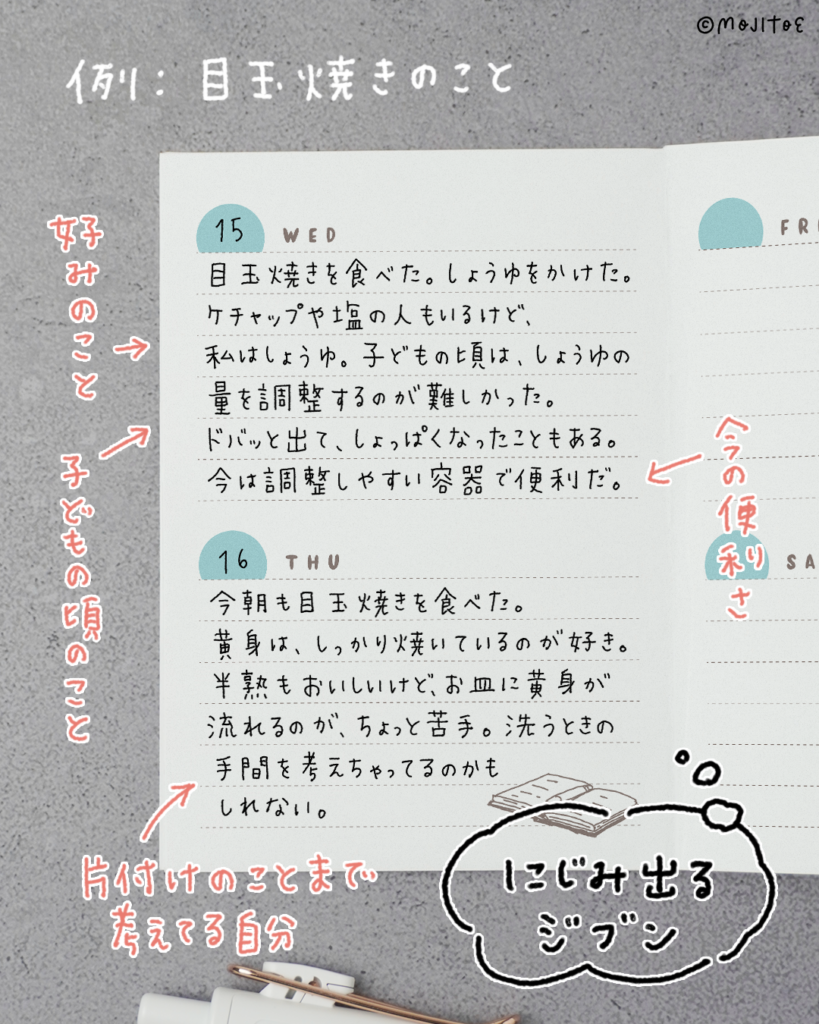 ©MOJITOE
例：目玉焼きのこと
15 WED
目玉焼きを食べた。しょうゆをかけた。
ケチャップや塩の人もいるけど、
私はしょうゆ。子どもの頃は、しょうゆの
量を調整するのが難しかった。
ドバッと出て、しょっぱくなったこともある。
今は調整しやすい容器で便利だ。
好みのこと
子どもの頃のこと
今の便利さ
16 THU
今朝も目玉焼きを食べた。
黄身は、しっかり焼いているのが好き。
半熟もおいしいけど、お皿に黄身が
流れるのが、ちょっと苦手。洗うときの
手間を考えちゃってるのかも
しれない。
片付けのことまで
考えてる自分
にじみ出る
ジブン
FR
SA